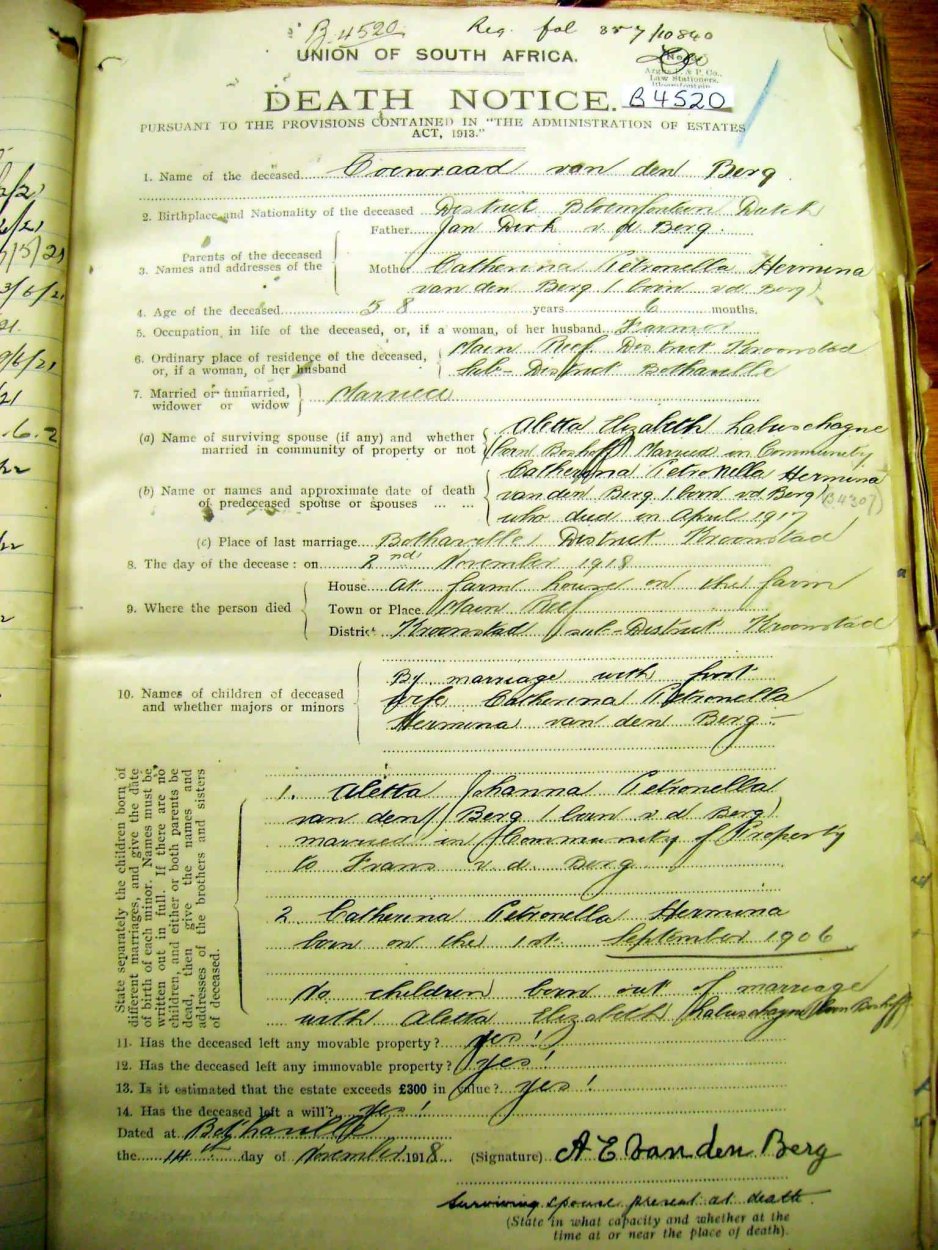 B.4520 Reg. fol 887/10840
UNION OF SOUTH AFRICA.
Argus P. & P. Co.,
Law Stationers,
Bloemfontein
DEATH NOTICE. B4520
PURSUANT TO THE PROVISIONS CONTAINED IN "THE ADMINISTRATION OF ESTATES
ACT, 1913."
1. Name of the deceased Coenraad van den Berg
2. Birthplace and Nationality of the deceased District Bloemfontein Dutch
Father Jan Dirk v d Berg.
Parents of the deceased
3. Names and addresses of the
Mother Catherina Petronella Hermina
van den Berg (born vd Berg)
4. Age of the deceased 58 years 6 months.
5. Occupation, in life of the deceased, or, if a woman, of her husband Farmer
6. Ordinary place of residence of the deceased, Main Reef District Kroonstad
or, if a woman, of her husband Sub-District Bothaville
7. Married or unmarried, Married
widower or widow
(a) Name of surviving spouse (if any) and whether Aletta Elizabeth Labuschagne
married in community of property or not (born Boshoff) Married in Community
(b) Name or names and approximate date of death Catherina Petronella Hermina
of predeceased spouse or spouses ... ... van den Berg (born vd Berg) (B4307)
who died in April 1917
(c) Place of last marriage Bothaville District Kroonstad
8. The day of the decease: on 2nd November 1918
House At farm house on the farm
9. Where the person died Town or Place Main Reef
District Kroonstad sub-District Kroonstad
By marriage with first
10. Names of children of deceased wife Catherina Petronella
and whether majors or minors Hermina van den Berg -
State separately the children born of
different marriages, and give the date
of birth of each minor. Names must be
written out in full. If there are no
children, and either or both parents be
dead, then give the names and
addresses of the brothers and sisters
of deceased.
1. Aletta Johanna Petronella
van den Berg (born v d Berg)
married in Community of Property
to Frans v. d. Berg
2 Catherina Petronella Hermina
born on the 1st September 1906
No children born out of marriage
with Aletta Elizabeth Labuschagne (born Boshoff)
11. Has the deceased left any movable property? yes!
12. Has the deceased left any immovable property? yes!
13. Is it estimated that the estate exceeds £300 in value? yes!
14. Has the deceased left a will? yes!
Dated at Bothaville
the 14th day of November 1918 (Signature) A E van den Berg
Surviving spouse present at death.
(State in what capacity and whether at the
time at or near the place of death).